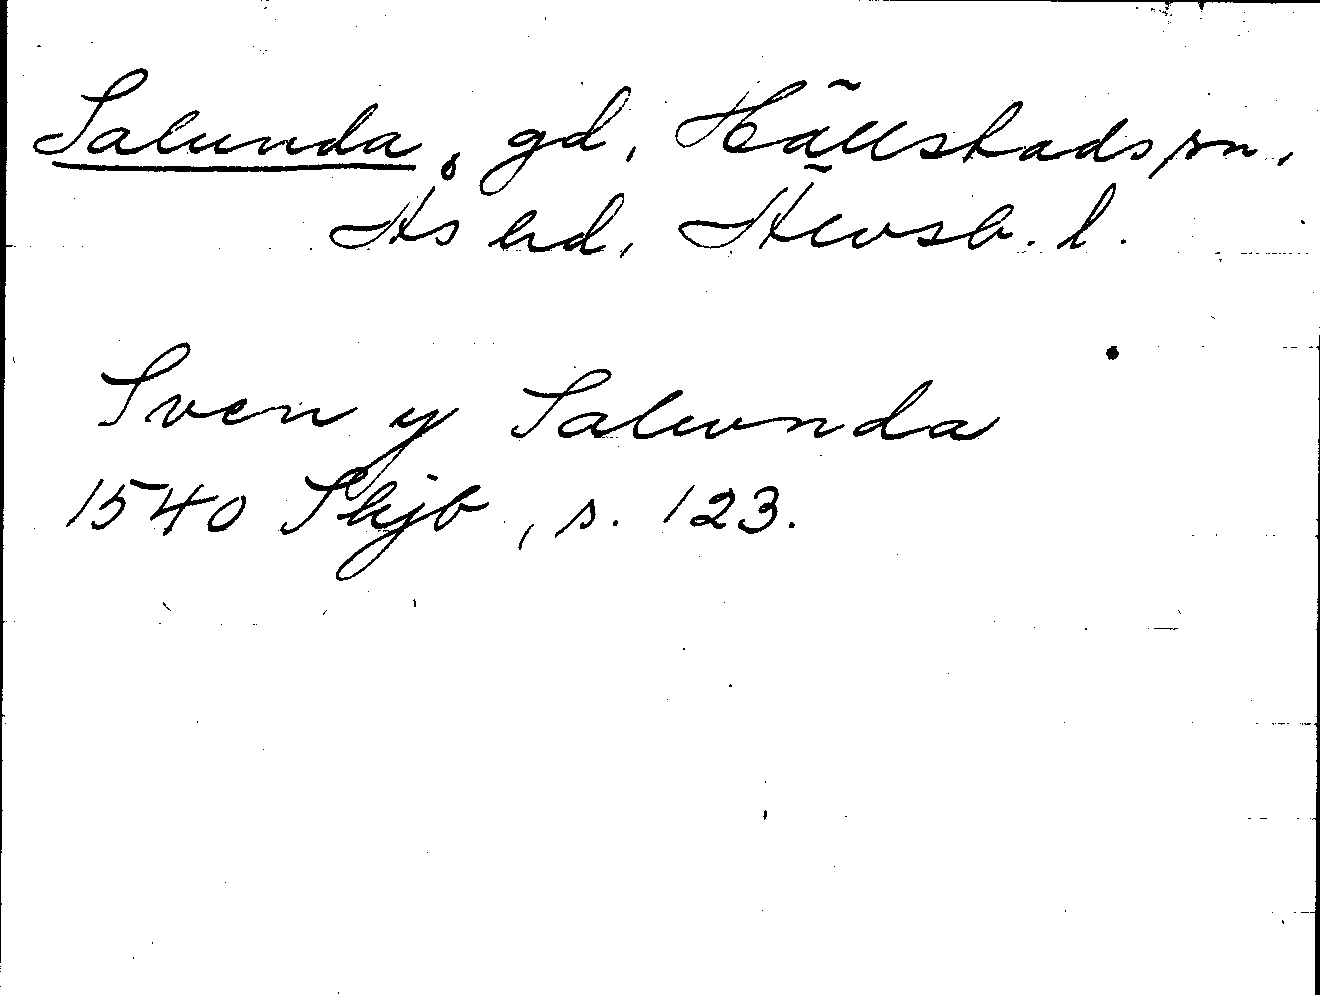 Salunda, gd, Hällstads sn,
Ås hd, Älvsb. l.
Sven y Salwnda
1540 Skjb, s. 123.